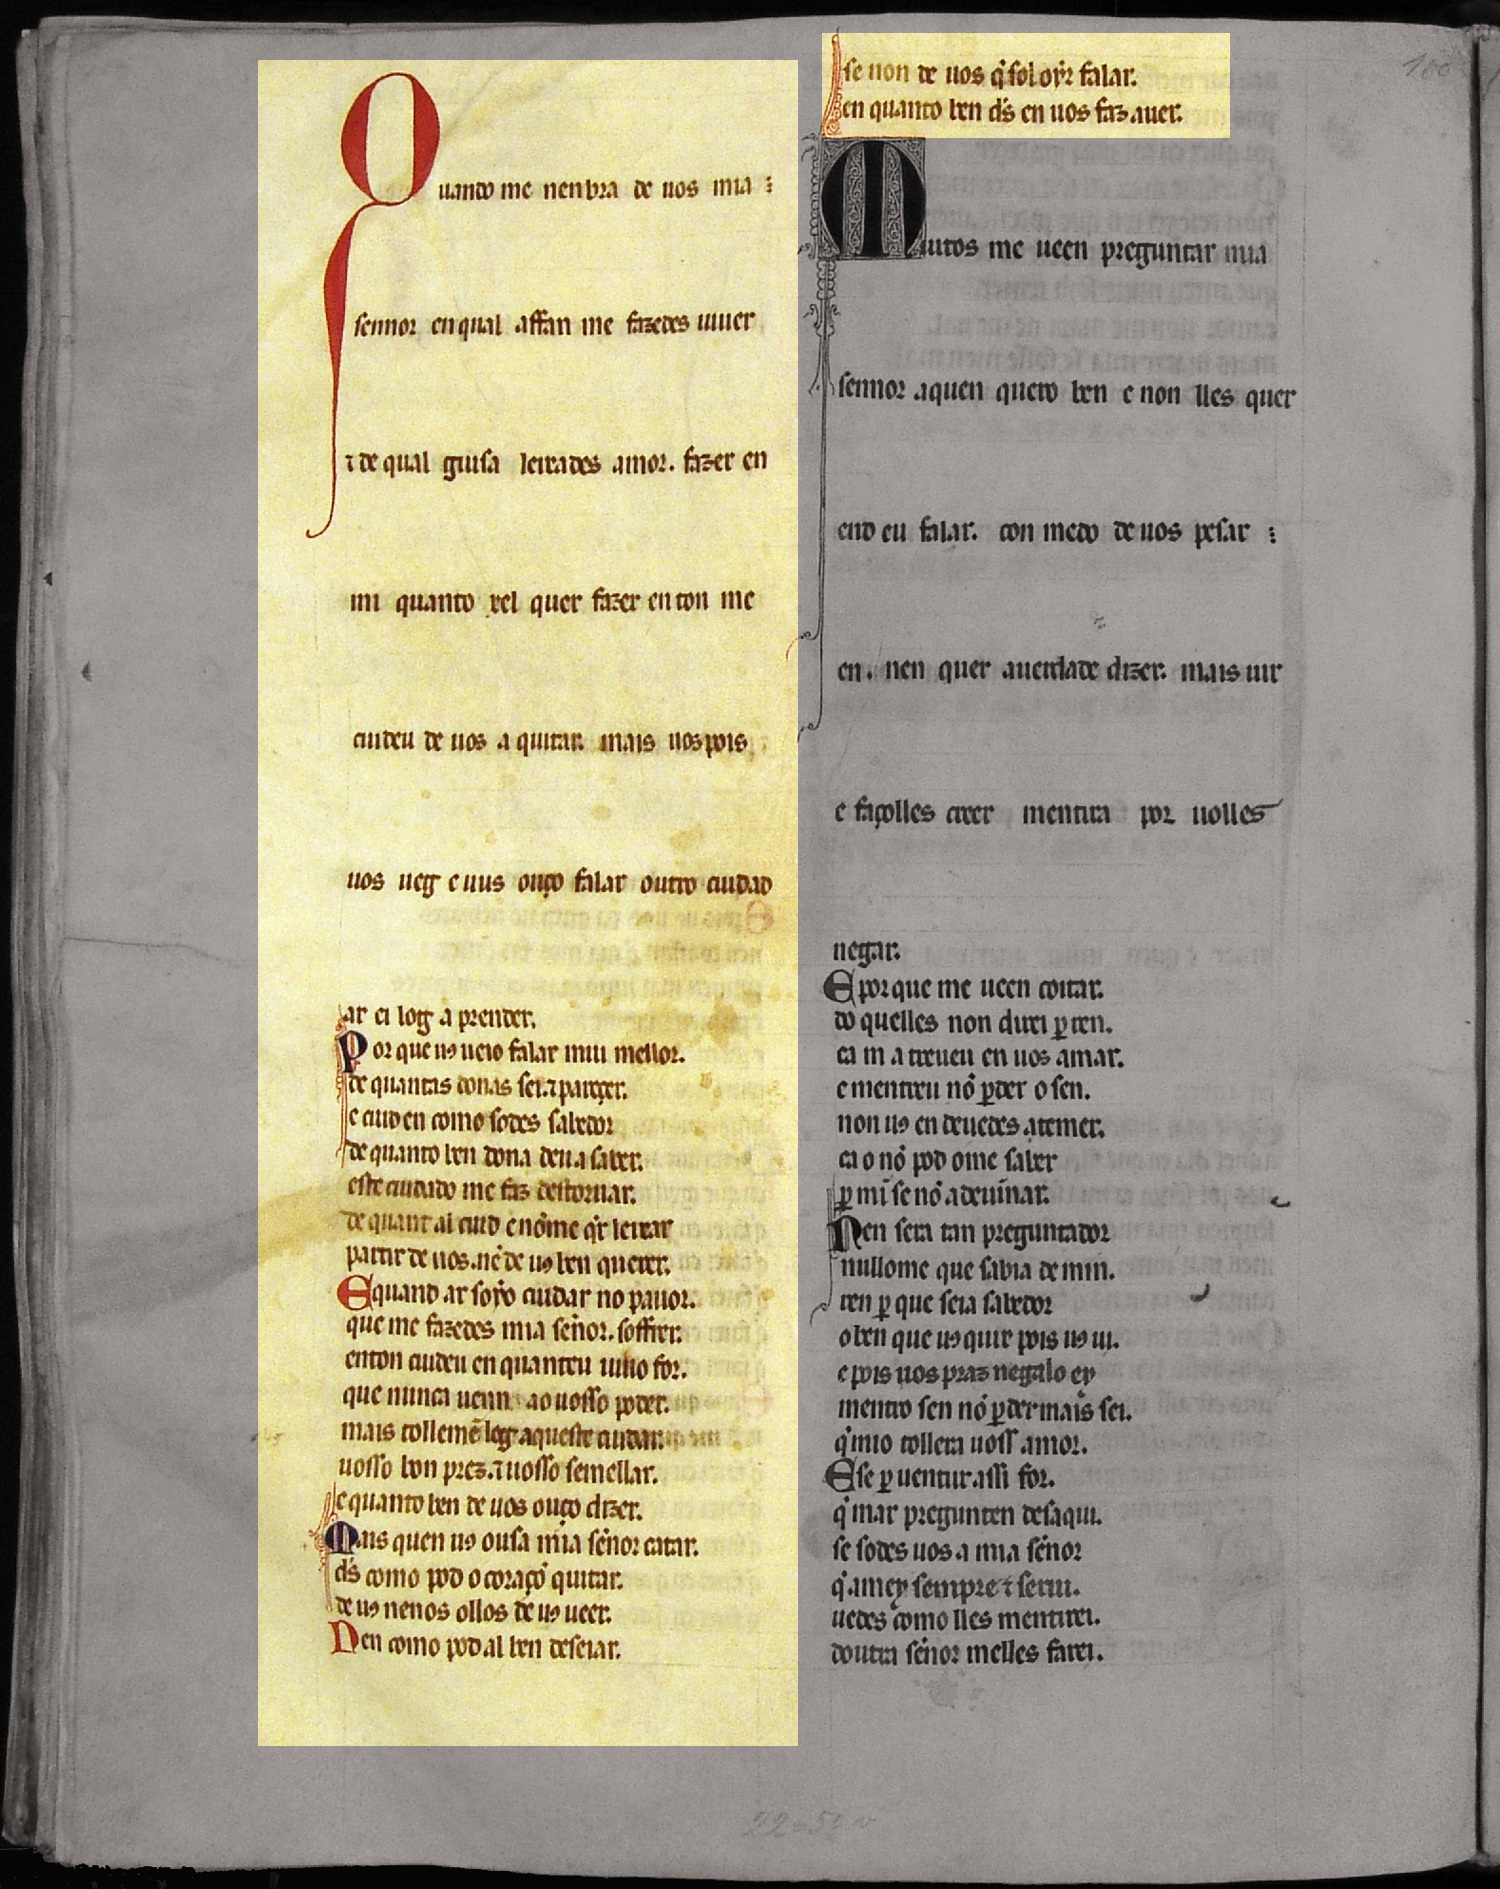 Quando me nenbra de uos mia
sennor en qual affan me fazedes uiuer
⁊ de qual guisa leixades amor. fazer en
mi quanto xel quer fazer enton me
cuideu de uos a quitar. mais uos pois
uos ueg e uus ouço falar outro cuidad
ar ei log a prender.
Por que us ueio falar mui mellor.
de quantas donas sei. ⁊ pareçer.
e cuid en como sodes sabedor
de quanto ben dona deu a saber.
este cuidado me faz destoruar.
de quant al cuid e nõ me qr leixar
partir de uos. nẽ de us ben querer.
E quand ar soyo cuidar no pauor.
que me fazedes mia señor. soffrer.
enton cuideu en quanteu uiuo for.
que nunca uenna ao uosso poder.
mais tollemẽ log aqueste cuidar.
uosso bon prez. ⁊ uosso semellar.
e quanto ben de uos ouço dizer.
Mais quen us ousa mia señor catar.
ds como pod o coraçõ quitar.
de us nenos ollos de us ueer.
Nen como pod al ben deseiar.
se non de uos q sol oyr falar.
en quanto ben ds en uos faz auer.
Muitos me ueen preguntar mia
sennor a quen quero ben e non lles quer
end eu falar. con medo de uos pesar
en. nen quer a uerdade dizer. mais iur
e façolles creer mentira por uolles
negar.
E por que me ueen coitar.
do quelles non direi ꝑ ren.
ca m atreueu en uos amar.
e mentreu nõ ꝑder o sen.
non us en deuedes a temer.
ca o nõ pod ome saber
ꝑ mi se nõ adeuinar.
Nen sera tan preguntador
nullome que sabia de min.
ren ꝑ que seia sabedor
o ben que us quix pois us ui.
e pois uos praz negalo ey
mentro sen nõ ꝑder mais sei.
q mio tollera uoss amor.
E se ꝑ uentur assi for.
q mar pregunten desaqui.
se sodes uos a mia señor
q amey sempre ⁊ serui.
uedes como lles mentirei.
doutra señor melles farei.